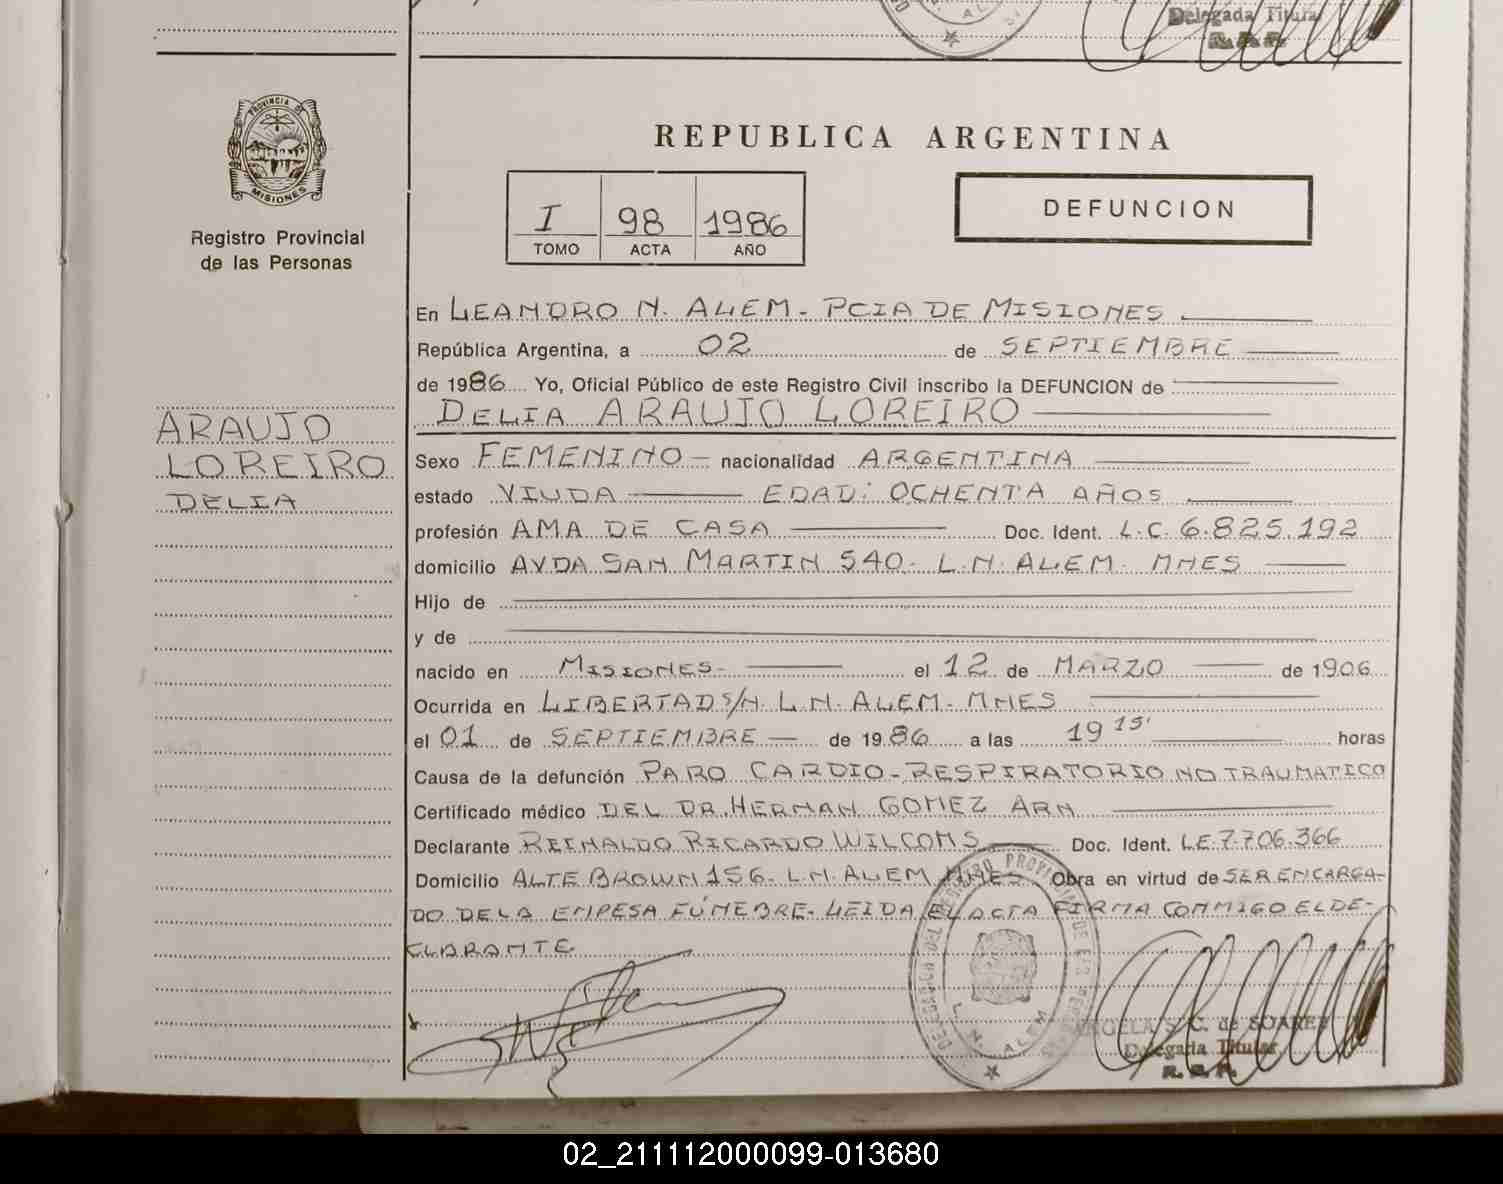 Delegada Titular
R. P. P.
PROVINCIA DE
MISIONES
Registro Provincial
de las Personas
ARAUJO
LOREIRO
DELIA
REPUBLICA ARGENTINA
I 98 1986
TOMO ACTA AÑO
DEFUNCION
En LEANDRO N. ALEM - PCIA DE MISIONES
República Argentina, a 02 de SEPTIEMBRE
de 1986 Yo, Oficial Público de este Registro Civil inscribo la DEFUNCION de
DELIA ARAUJO LOREIRO
Sexo FEMENINO - nacionalidad ARGENTINA
estado VIUDA EDAD: OCHENTA AÑOS
profesión AMA DE CASA Doc. Ident. L.C. 6.825.192
domicilio AVDA SAN MARTIN 540 - L.N. ALEM - MNES
Hijo de
y de
nacido en MISIONES - el 12 de MARZO de 1906
Ocurrida en LIBERTAD S/N. L.N. ALEM - MNES
el 01 de SEPTIEMBRE de 1986 a las 19 15' horas
Causa de la defunción PARO CARDIO-RESPIRATORIO NO TRAUMATICO
Certificado médico DEL DR. HERNAN GOMEZ ARN
Declarante REINALDO RICARDO WILCOMS Doc. Ident. LE. 7.706.366
Domicilio ALTE BROWN 156 - L.N. ALEM MNES Obra en virtud de SER ENCARGA-
DO DE LA EMPESA FÚNEBRE - LEIDA EL ACTA FIRMA CONMIGO EL DE-
CLARANTE
L. N. ALEM
C. de SOAREZ
Delegada Titular
R. P. P.
02_211112000099-013680